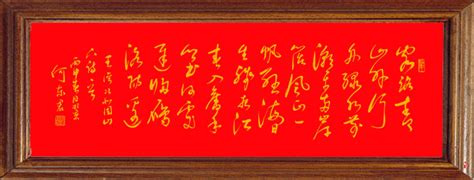 客路青
山外行
舟绿水前
潮平两岸
阔风正一
帆悬海日
生残夜江
春入旧年
乡书何处
达归雁
洛阳边
王湾次北固山